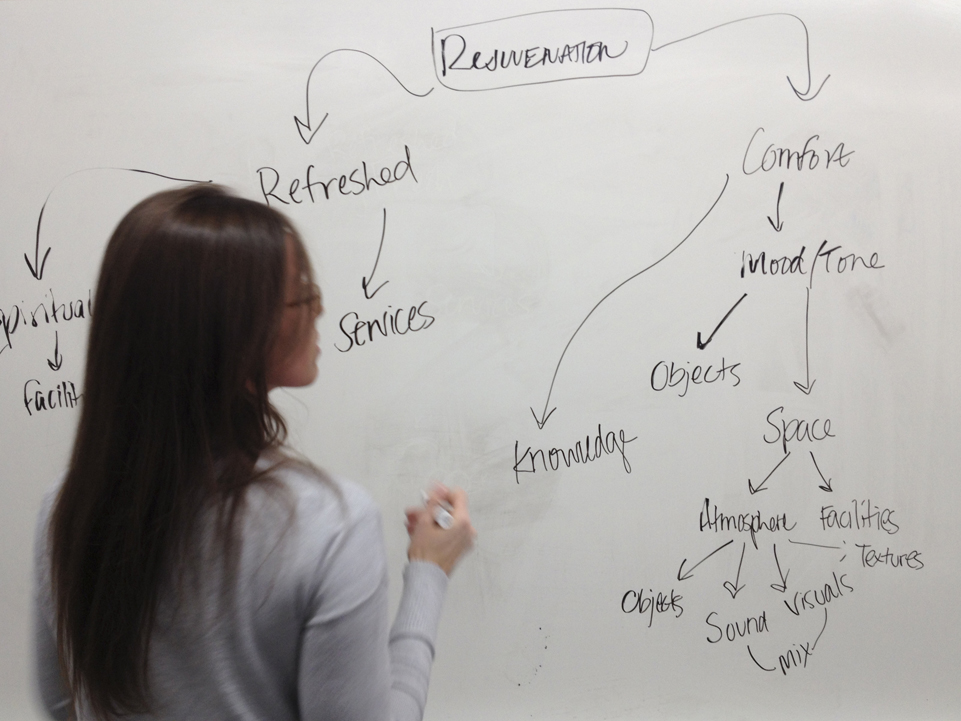 REJUVENATION
Refreshed
Comfort
Mood/Tone
Services
Objects
Space
Knowledge
Atmosphere
Facilities
Textures
Objects
Sound
Visuals
mix